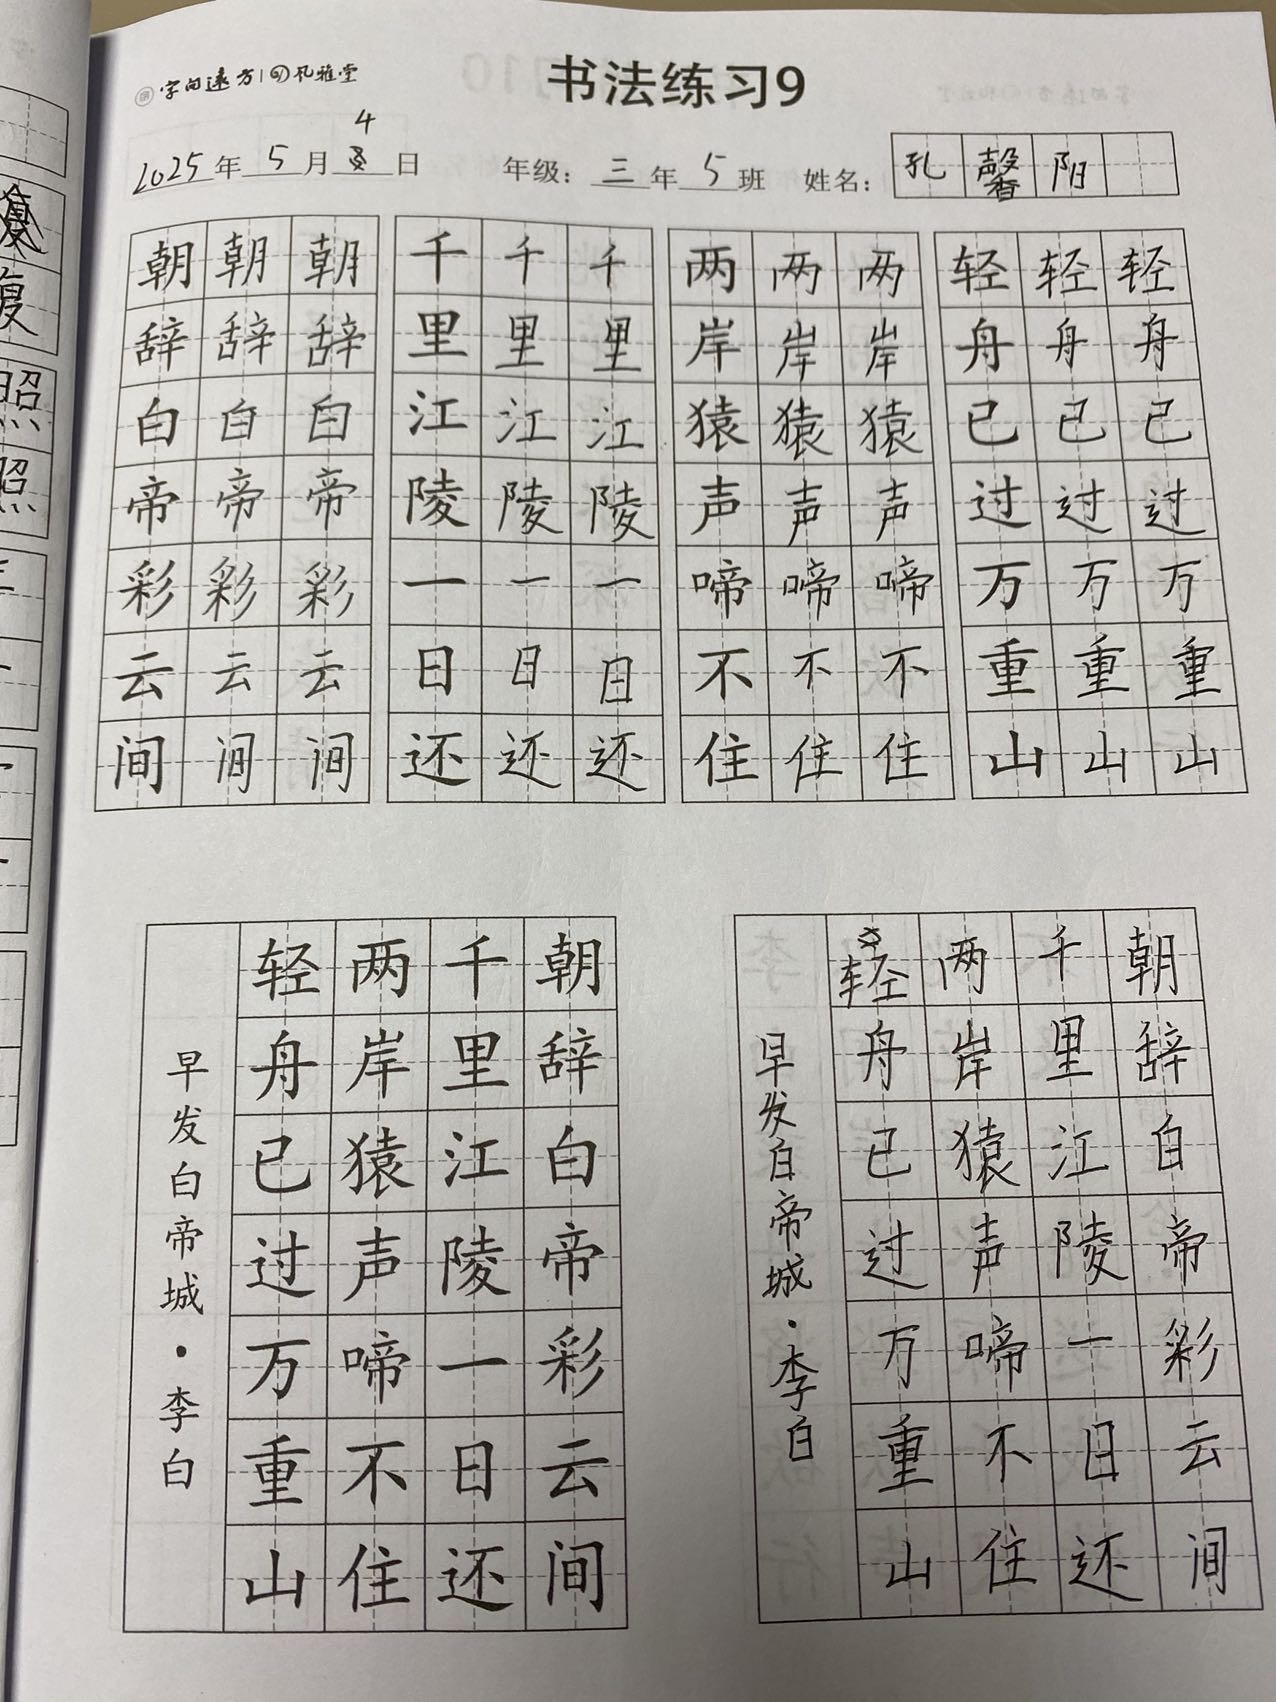 字向远方 孔雅堂
书法练习9
2025年5月4日 年级：三年5班 姓名：孔馨阳
朝朝朝 千千千 两两两 轻轻轻
辞辞辞 里里里 岸岸岸 舟舟舟
白白白 江江江 猿猿猿 已已已
帝帝帝 陵陵陵 声声声 过过过
彩彩彩 一一一 啼啼啼 万万万
云云云 日日日 不不不 重重重
间间间 还还还 住住住 山山山
朝辞白帝彩云间
千里江陵一日还
两岸猿声啼不住
轻舟已过万重山
早发白帝城·李白
朝辞白帝彩云间
千里江陵一日还
两岸猿声啼不住
轻舟已过万重山
早发白帝城·李白
复
复
照
照